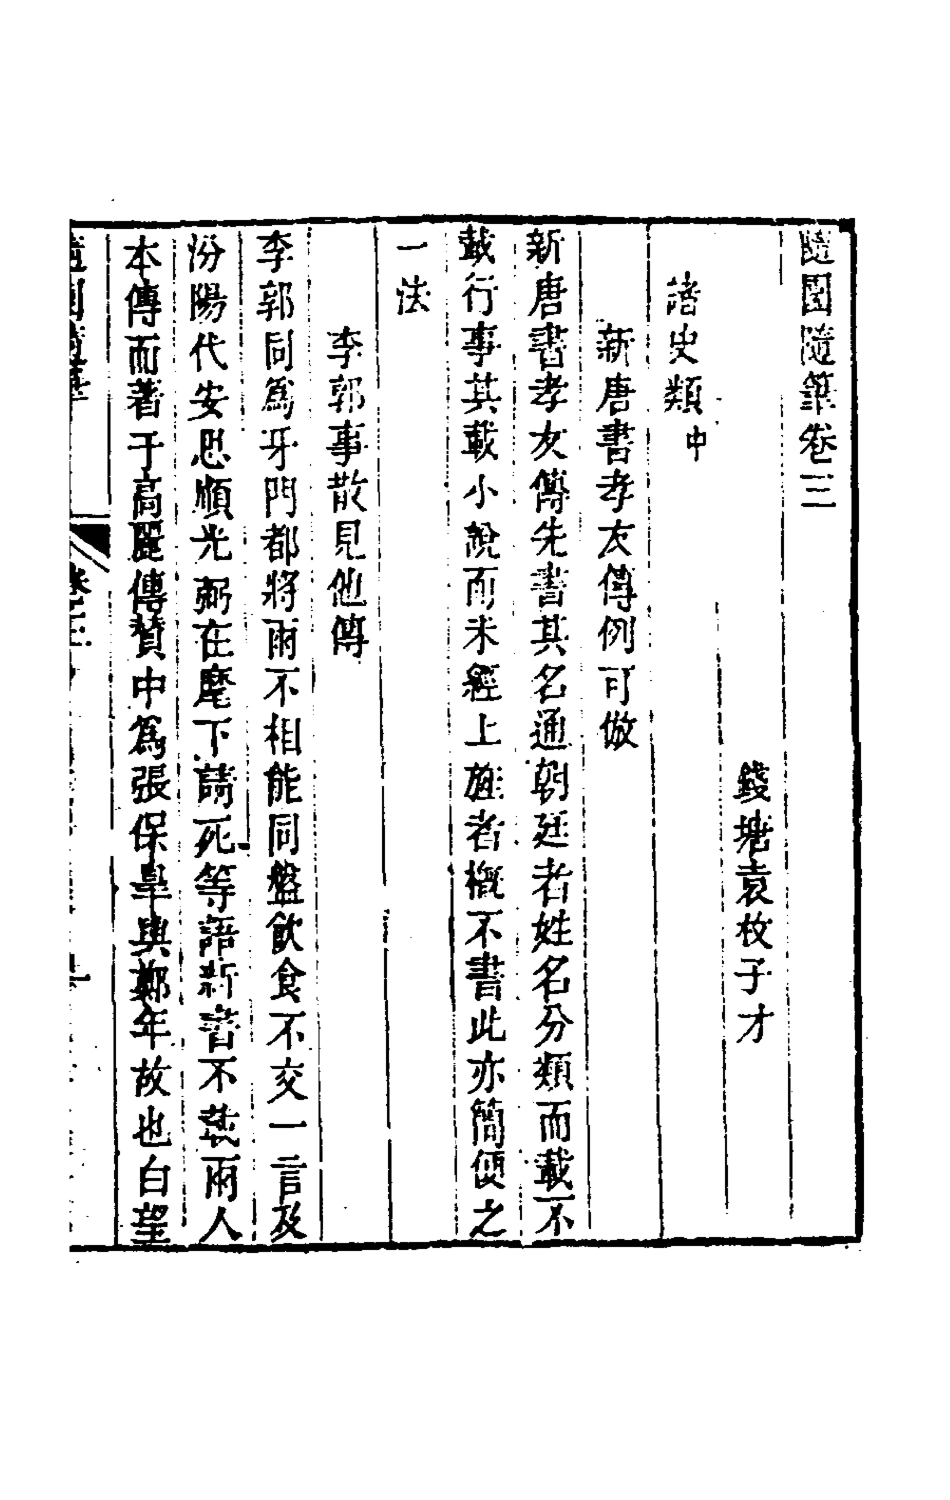 隨園隨筆卷三
錢塘袁枚子才
諸史類中
新唐書孝友傳例可倣
新唐書孝友傳先書其名通朝廷者姓名分類而載不
載行事其載小說而未經上旌者概不書此亦簡便之
一法
李郭事散見他傳
李郭同爲牙門都將兩不相能同盤飮食不交一言及
汾陽代安思順光弼在麾下請死等語新書不載兩人
本傳而著于高麗傳贊中爲張保皐與鄭年故也白望
隨園隨筆 卷三